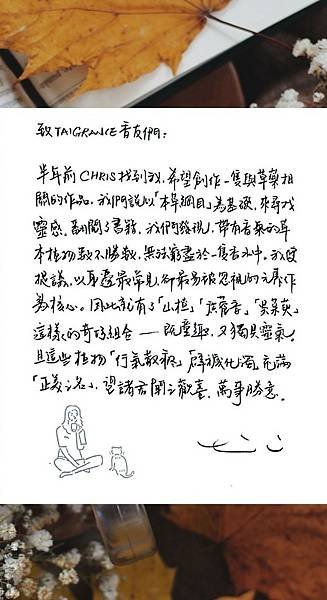 致TAIGRANCE香友們：
半年前CHRIS找到我，希望創作一隻與草藥相
關的作品。我們說以「本草綱目」為基礎，來尋找
靈感。翻閱了書籍，我們發現，帶有香氣的草
本植物數不勝數，無法窮盡於一隻香水中。我便
提議，以身邊最常見，卻最易被忽視的元素作
為核心。因此就有了「山楂」「廣藿香」「吳茱萸」
這樣的奇特組合——既童趣，又獨具靈氣。
且這些植物「行氣散瘀」「辟穢化濁」充滿
「正義之名」，望諸君聞之歡喜，萬事勝意。